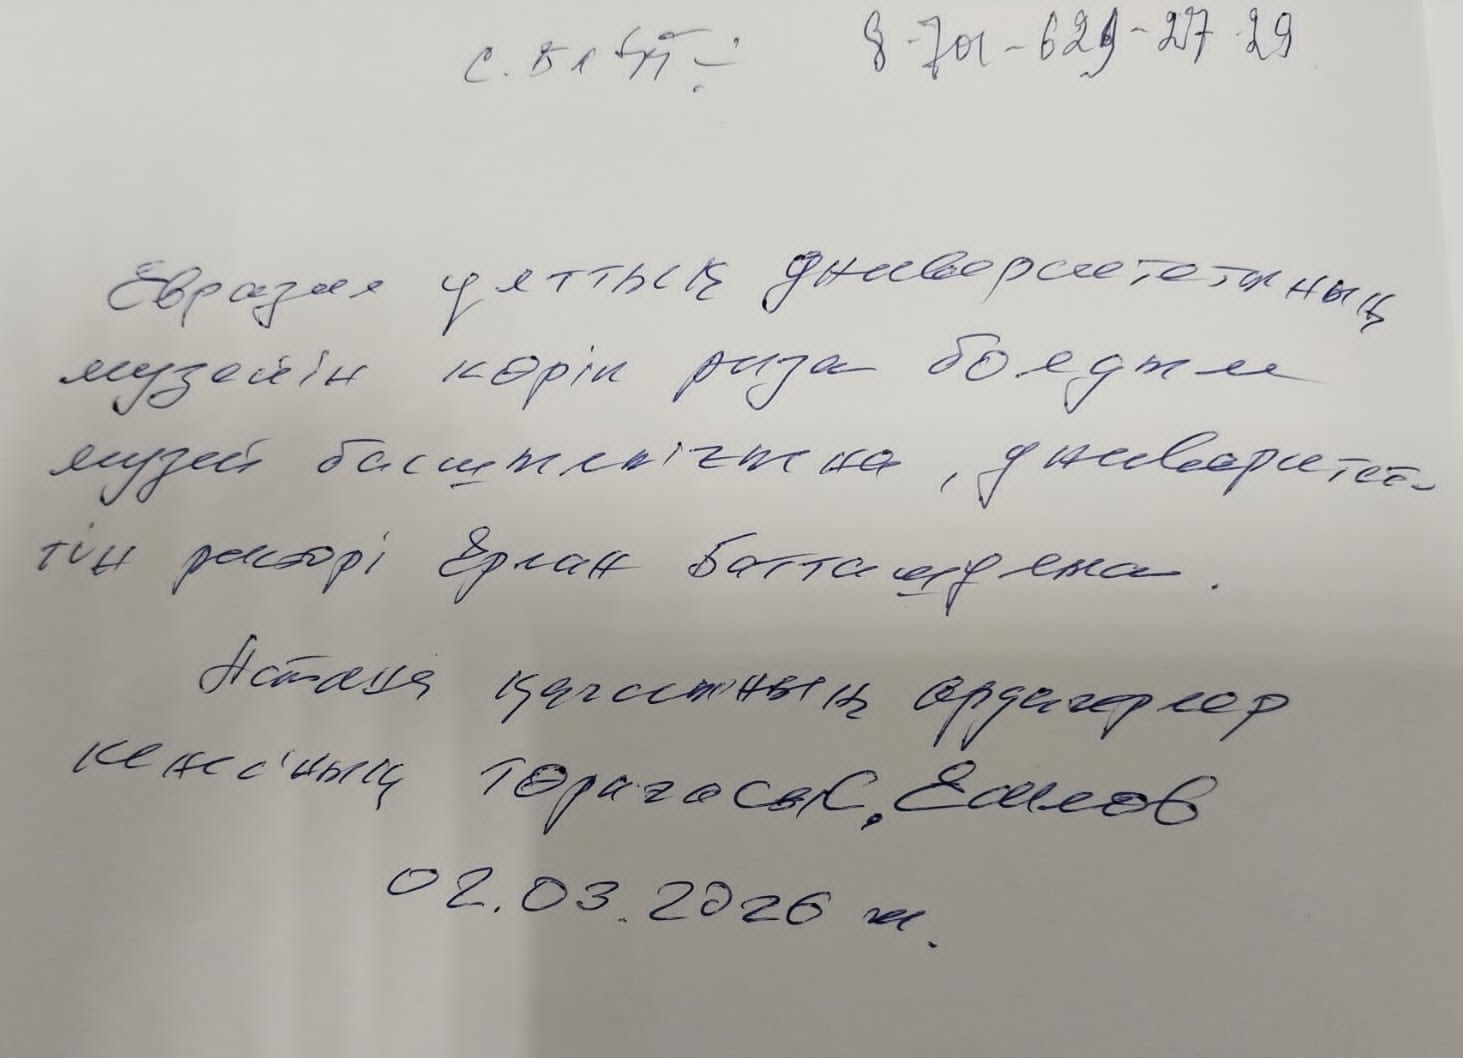 8-701-629-27-29
Евразия ұлттық университетының
музейін көріп риза болдым
музей басшылығына, университет-
тің ректоры Ерлан Батташұлына.
Астана қаласының ардагерлер
кеңесінің төрағасы С.
02.03.2026 ж.